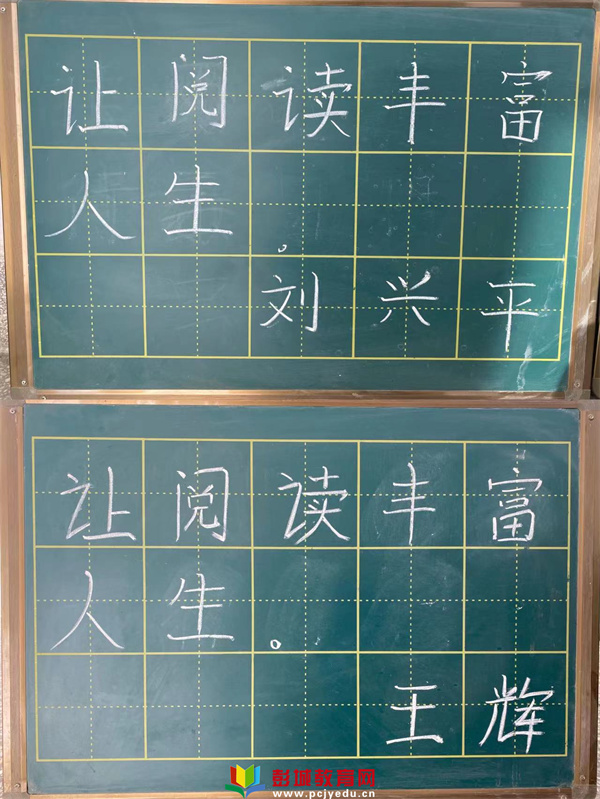 让阅读丰富
人生。
刘兴平
让阅读丰富
人生。
王辉
彭城教育网
www.pcjyedu.cn